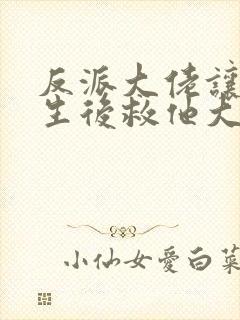 反派大佬讓
生後救他犬
小仙女愛白菜